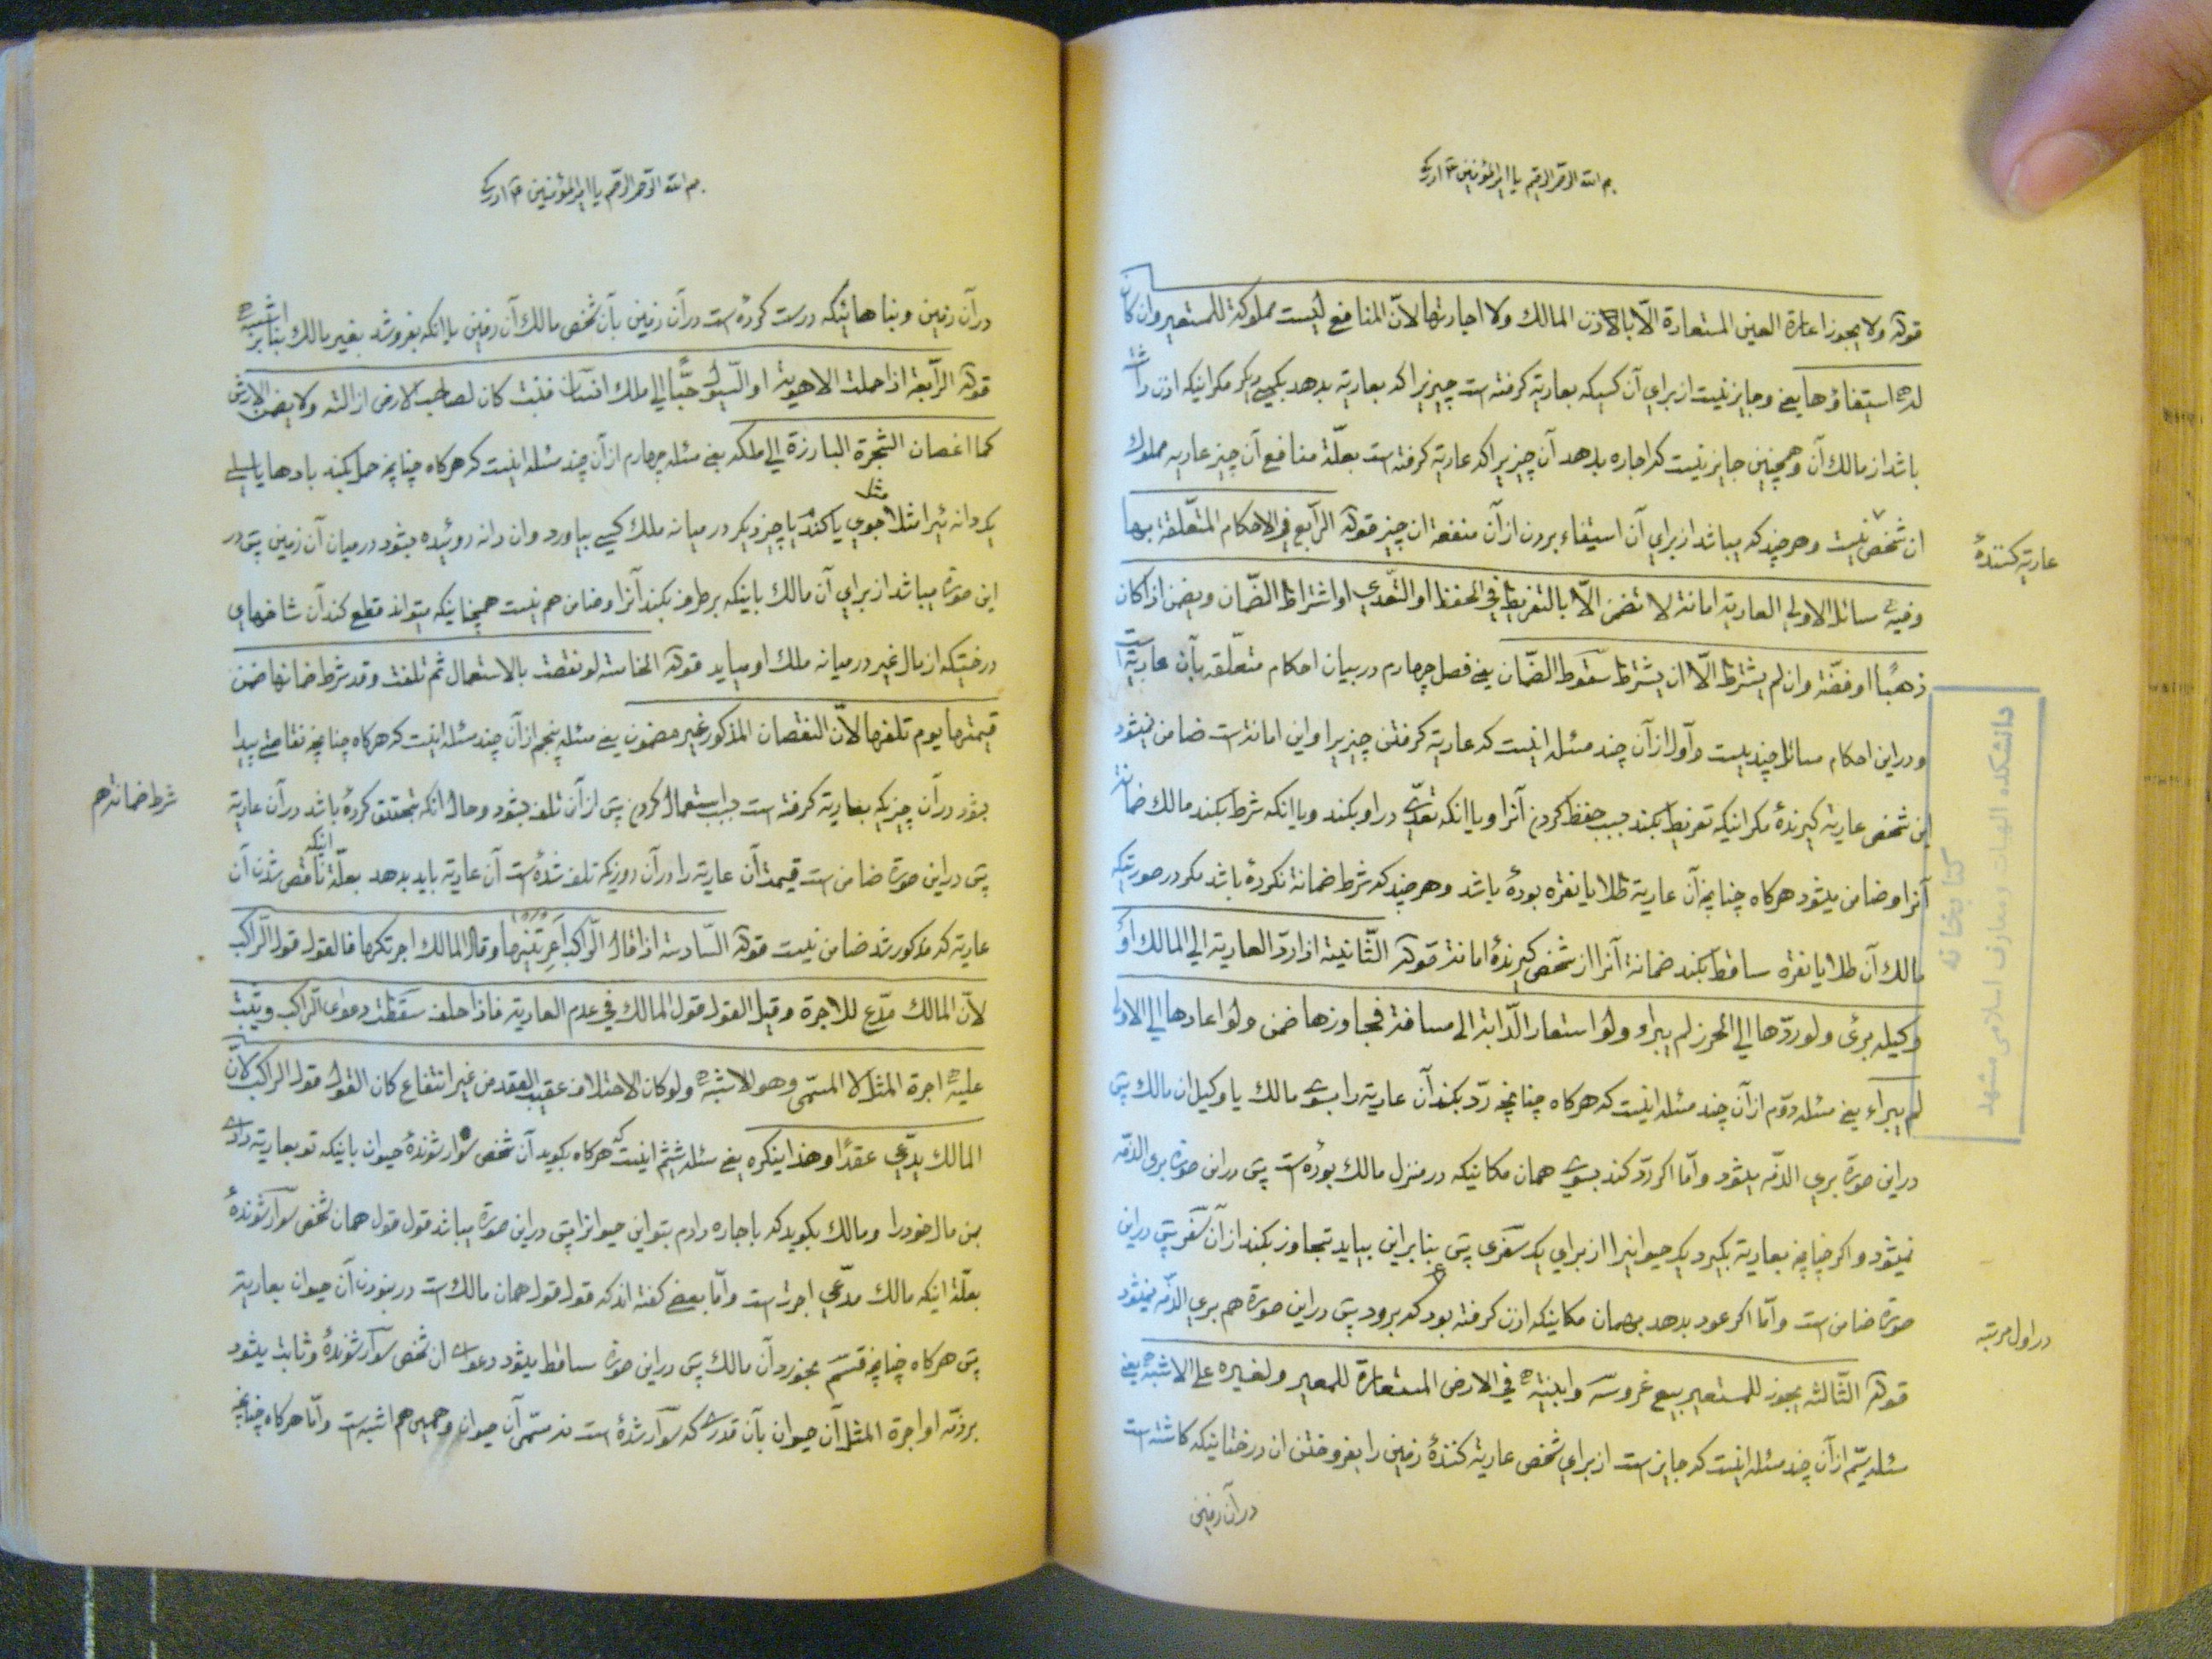 بسم الله الرحمن الرحیم یا امیرالمؤمنین ع ادرکنی
قوله ولا یجوز اعارة العین المستعارة الّا بالاذن المالك ولا اجارتها لانّ المنافع لیست مملوکة للمستعیر وان کان
له استیفاؤها یعنی و جایز نیست از برای آن کسیکه بعاریة کرفته است چیزیرا که بعاریة بدهد بکسی دیکر مکر اینکه اذن داشته
باشد از مالك آن و همچنین جایز نیست که اجاره بدهد آن چیزیرا که عاریة کرفته است بعلّة منافع آن چیز عاریه مملوك
ان شخص نیست و هر چند که میباشد از برای آن استیفاء بردن از آن منفعة ان چیز قوله الرّابع فی الاحکام المتعلّقة بها
عاریة کنندهٔ
وفیه مسائل الاولی العاریة امانة لا تضمن الّا بالتفریط فی الحفظ او التّعدّی او اشتراط الضّمان ویضمن اذا کان
ذهبًا او فضّة وان لم یشترط الّا ان یشترط سقوط الضّمان یعنی فصل چهارم در بیان احکام متعلّقه بآن عاریة است
و در این احکام مسائل چندیست و اوّل از آن چند مسئله اینست که عاریة کرفتن چیزیرا و این امانة است ضامن نمیشود
این شخص عاریة کیرندهٔ مکر اینکه تفریط بکند بسبب حفظ کردن آنرا و یا انکه تعدّی در او بکند و یا انکه شرط بکند مالك ضمانة
آنرا و ضامن میشود هرکاه چنانچه آن عاریة طلا یا نقره بودهٔ باشد و هر چند که شرط ضمانة نکردهٔ باشد مکر در صورتیکه
مالك آن طلا یا نقره ساقط بکند ضمانة آنرا از شخص کیرندهٔ امانة قوله الثّانیة اذا ردّ العاریة الی المالك او
وکیله برئ ولو ردّها الی الحرز لم یبراء ولو استعار الدّابة الی مسافة فجاوزها ضمن ولو اعادها الی الاولی
لم یبراء یعنی مسئله دوّم از آن چند مسئله اینست که هرکاه چنانچه ردّ بکند آن عاریة را بسوی مالك یا وکیل ان مالك پس
در این صورة بری الذمّه میشود و امّا اکر ردّ کند بسوی همان مکانیکه در منزل مالك بوده است پس در این صورة بری الذمّه
نمیشود و اکر چنانچه بعاریة بکیرد یك حیوانیرا از برای یك سفری پس بنا براین بیاید تجاوز بکند از آن سفر پس در این
صورة ضامن است و امّا اکر عود بدهد بهمان مکانیکه اذن کرفته بود که برود پس در این صورة هم بری الذمّه نمیشود
در اول مرتبه
قوله الثّالثه یجوز للمستعیر بیع غروسه وابنیته فی الارض المستعارة للمعیر ولغیره علی الاشبه یعنی
مسئله سیّم از آن چند مسئله اینست که جایز است از برای شخص عاریة کنندهٔ زمین را بفروختن ان درختانیکه کاشته است
در آن زمین
دانشکده الهیات و معارف اسلامی مشهد
کتابخانه
بسم الله الرحمن الرحیم یا امیرالمؤمنین ع ادرکنی
در آن زمین و بناهائیکه درست کرده است در آن زمین بآن شخص مالك آن زمین یا انکه بفروشد بغیر مالك بنابر اشبه
قوله الرّابعة اذا حملت الاهویة او السّیول حبًّا الی ملك انسان فنبت کان لصاحب الارض ازالته ولا یضمن الارش
کما اغصان الشّجرة البارزة الی ملکه یعنی مسئله چهارم از آن چند مسئله اینست که هرکاه چنانچه حمل بکند بادها یا سیلی
یك دانه ئیرا مثلا جوی یا کندم یا چیز دیکر در میانه ملك کسی بیاورد و ان دانه روئیده بشود در میان آن زمین پس در
این صورة میباشد از برای آن مالك باینکه برطرف بکند آنرا و ضامن هم نیست همچنانیکه میتواند قطع کند آن شاخهای
درختیکه از مال غیر در میانه ملك او میاید قوله الخامسة لو نقصت بالاستعمال ثم تلفت وقد شرط ضمانها ضمن
قیمتها یوم تلفها لانّ النقصان المذکور غیر مضمون یعنی مسئله پنجم از آن چند مسئله اینست که هرکاه چنانچه نقاصتی پیدا
بشود در آن چیزیکه بعاریة کرفته است بسبب استعمال کردن پس از آن تلف بشود و حال انکه بتحقیق کردهٔ باشد در آن عاریة
شرط ضمانة هم
پس در این صورة ضامن است قیمة آن عاریة را در آن روزیکه تلف شدهٔ است آن عاریة باید بدهد بعلّة اینکه ناقص شدن آن
عاریة که مذکور شد ضامن نیست قوله السّادسة اذا قال الرّاکب اَعَرْتَنیها وقال المالك اجرتکها فالقول قول الرّاکب
لانّ المالك مدّع للاجرة وقیل القول قول المالك فی عدم العاریة فاذا حلف سقطت دعوی الرّاکب ویثبت
علیه اجرة المثل لا المسمّی وهو الاشبه ولو کان الاختلاف عقیب العقد من غیر انتفاع کان القول قول الراکب لانّ
المالك یدّعی عقدًا وهذا ینکره یعنی مسئله ششم اینست که هرکاه بکوید آن شخص سوار شوندهٔ حیوان باینکه تو بعاریة دادی
بمن مال خود را و مالك بکوید که باجاره دادم بتو این حیوانرا پس در این صورة میباشد قول قول همان شخص سوار شوندهٔ
بعلّة اینکه مالك مدّعی اجرت است و امّا بعضی کفته اند که قول قول همان مالك است در نبودن آن حیوان بعاریة
پس هرکاه چنانچه قسم بخورد آن مالك پس در این صورة ساقط میشود دعوای ان شخص سوار شوندهٔ و ثابت میشود
برذمّه او اجرة المثل آن حیوان بآن قدری که سوار شدهٔ است نه مسمّی آن حیوان و همین هم اشبه است و امّا هرکاه چنانچه